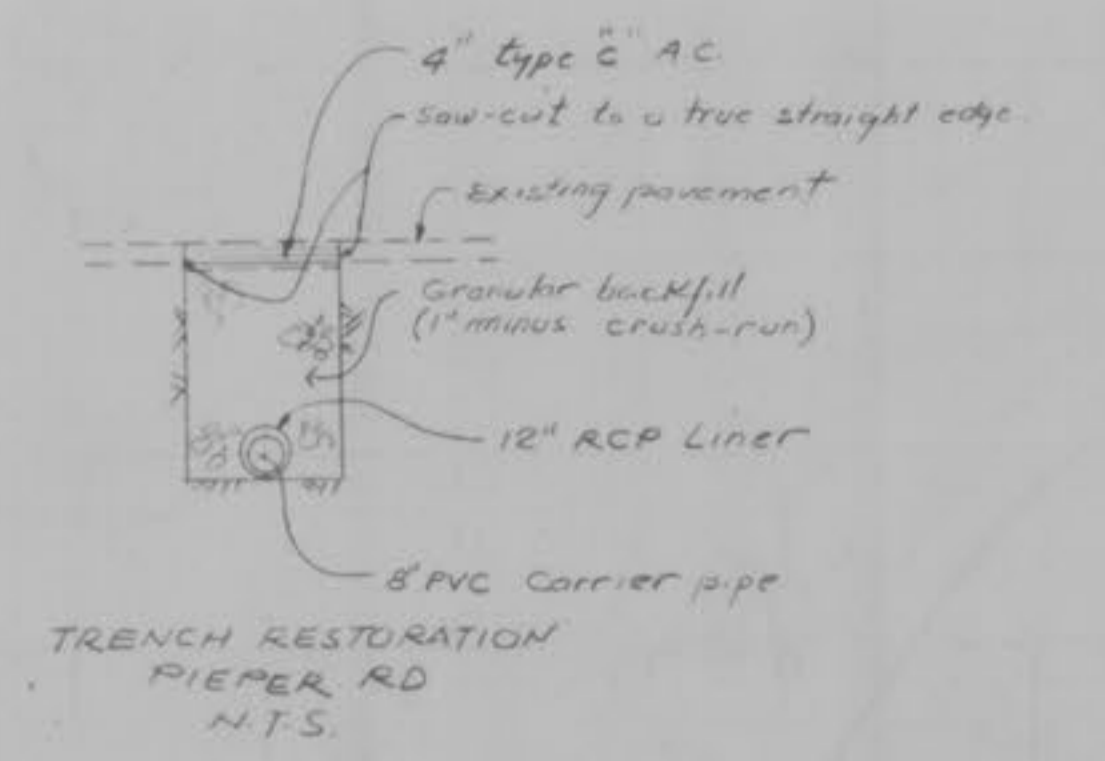 4" type "C" A.C.
Saw-cut to a true straight edge.
Existing pavement
Granular backfill
(1" minus crush-run)
12" RCP Liner
8" PVC Carrier pipe
TRENCH RESTORATION
PIEPER RD
N.T.S.